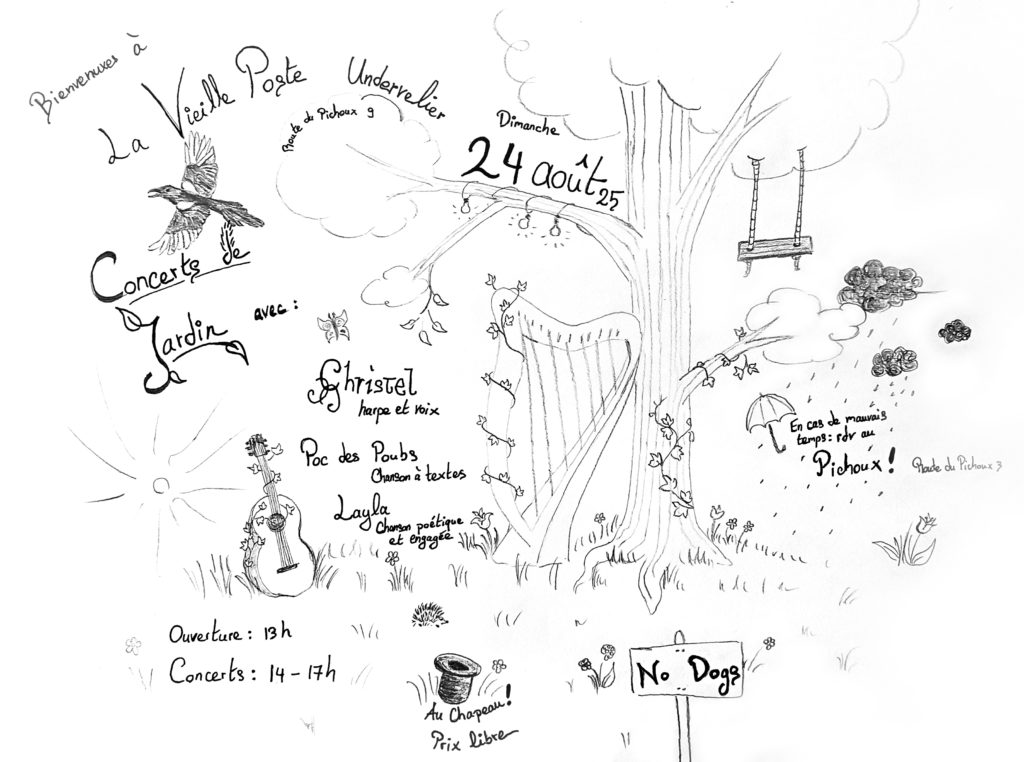 Bienvenuxes à
La Vieille Poste
Undervelier
Route du Pichoux 9
Dimanche
24 août 25
Concerts de
Jardin avec :
Christel
harpe et voix
Poc des Poubs
Chanson à textes
Layla
Chanson poétique
et engagée
En cas de mauvais
temps : rdv au
Pichoux !
Route du Pichoux 3
Ouverture : 13h
Concerts : 14 - 17h
Au Chapeau !
Prix libre
No Dogs